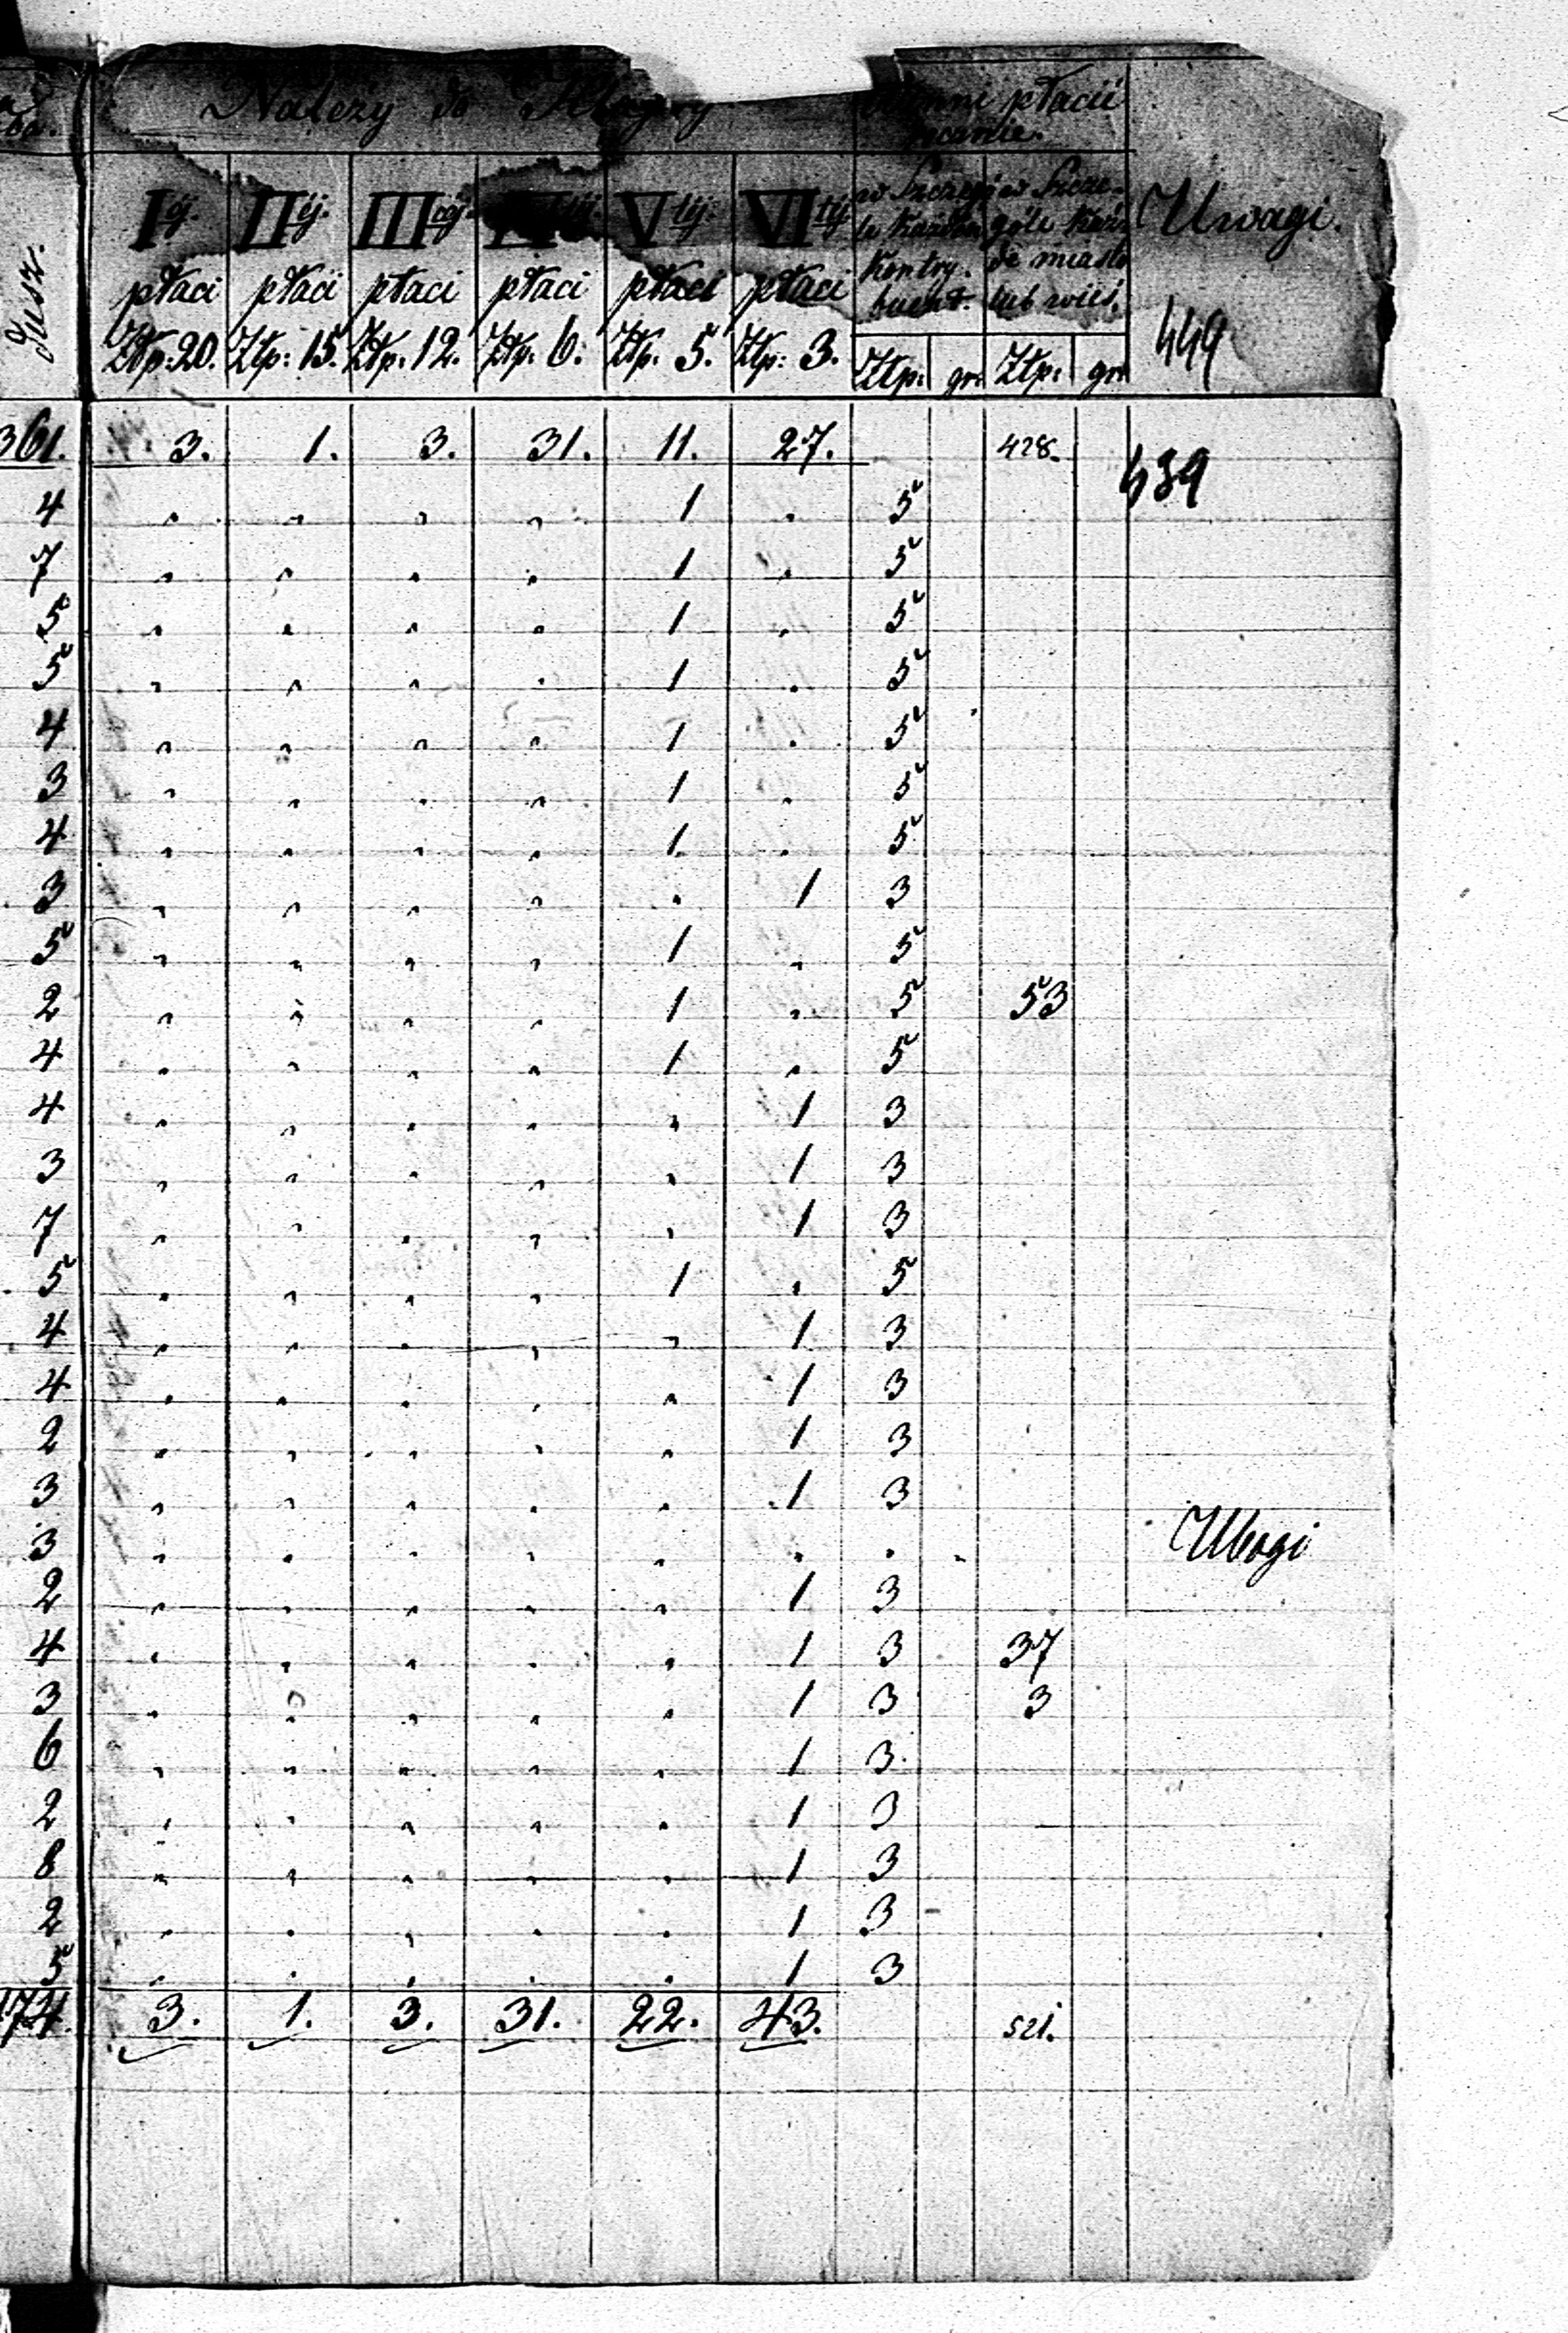 Należy do Klassy
płacić
rocznie.
Dusz.
Iéj. IIéj. IIIciéj. Vtéj. VItéj. Uwagi.
płaci płaci płaci płaci płaci płaci
Złp: 20. Złp: 15. Złp. 12. Złp. 6. Złp. 5. Złp: 3.
w Szczegó- w Szcze-
góle każ-
Kontry- de miasto
buent. lub wieś.
Złp: gr. Złp: gr.
449
361. 3. 1. 3. 31. 11. 27. 428. 439
4 „ „ „ „ 1 „ 5
7 „ „ „ „ 1 „ 5
5 „ „ „ „ 1 „ 5
5 „ „ „ „ 1 „ 5
4 „ „ „ „ 1 „ 5
3 „ „ „ „ 1 „ 5
4 „ „ „ „ 1 „ 5
3 „ „ „ „ „ 1 3
5 „ „ „ „ 1 „ 5
2 „ „ „ „ 1 „ 5 53
4 „ „ „ „ 1 „ 5
4 „ „ „ „ „ 1 3
3 „ „ „ „ „ 1 3
7 „ „ „ „ „ 1 3
5 „ „ „ „ 1 „ 5
4 „ „ „ „ „ 1 3
4 „ „ „ „ „ 1 3
2 „ „ „ „ „ 1 3
3 „ „ „ „ „ 1 3
3 „ „ „ „ „ „ „ „ Ubogi
2 „ „ „ „ „ 1 3
4 „ „ „ „ „ 1 3 37
3 „ „ „ „ „ 1 3 3
6 „ „ „ „ „ 1 3
2 „ „ „ „ „ 1 3
8 „ „ „ „ „ 1 3
2 „ „ „ „ „ 1 3 -
5 „ „ „ „ „ 1 3
74. 3. 1. 3. 31. 22. 43. 521.